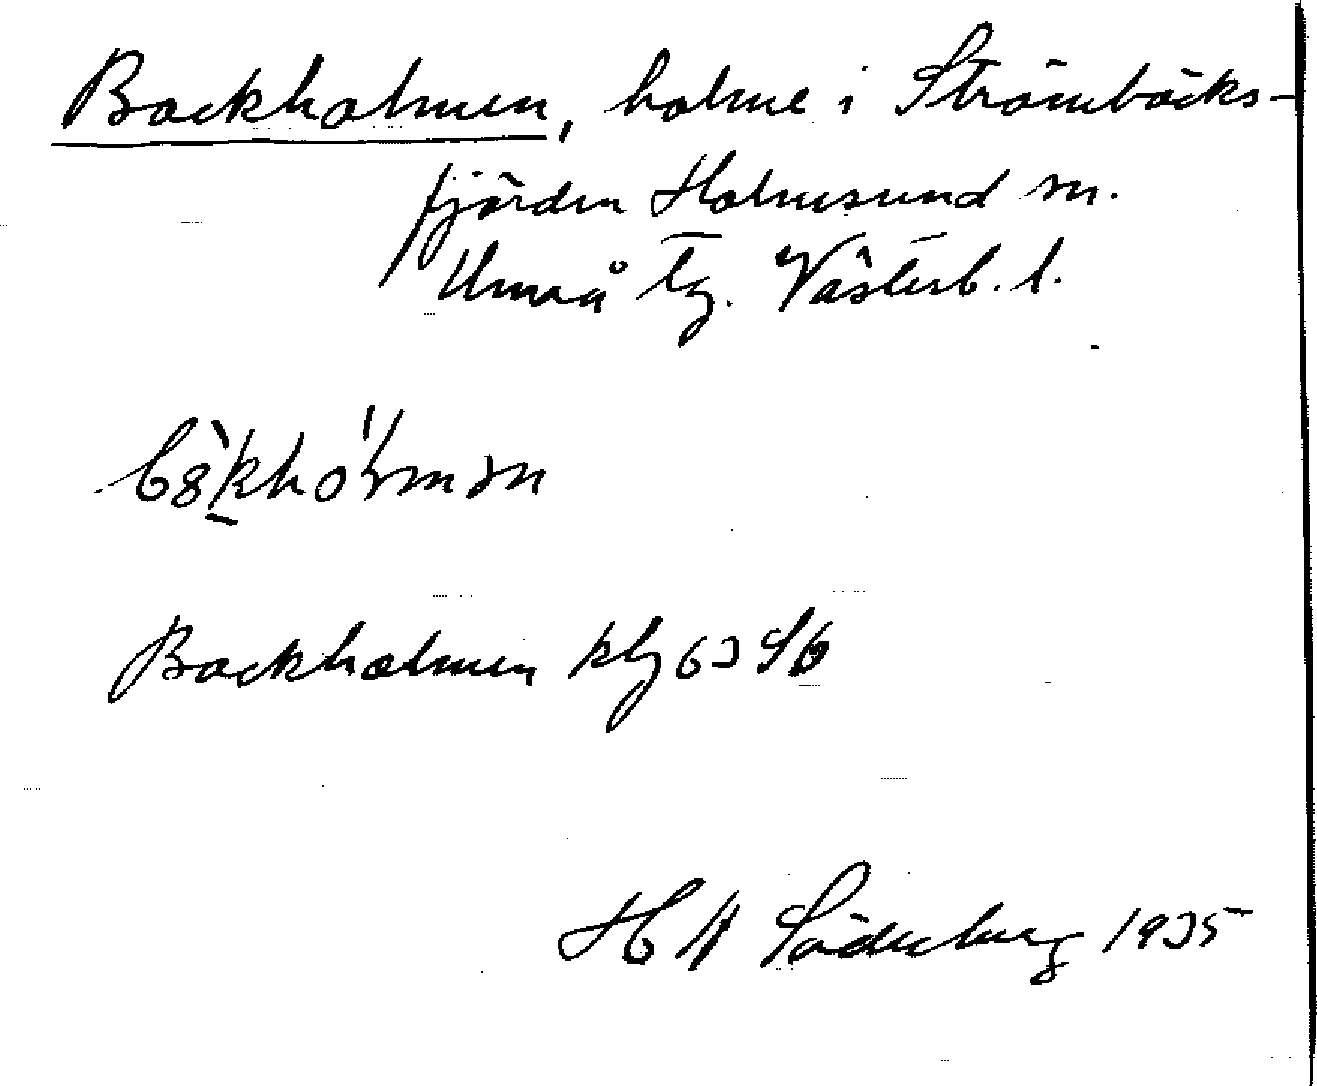 Bockholmen, holme i Strömbäcks-
fjärden Holmsund sn.
Umeå tg. Västerb. l.
Bockholmen kbl 63 Sb
H Söderberg 1935